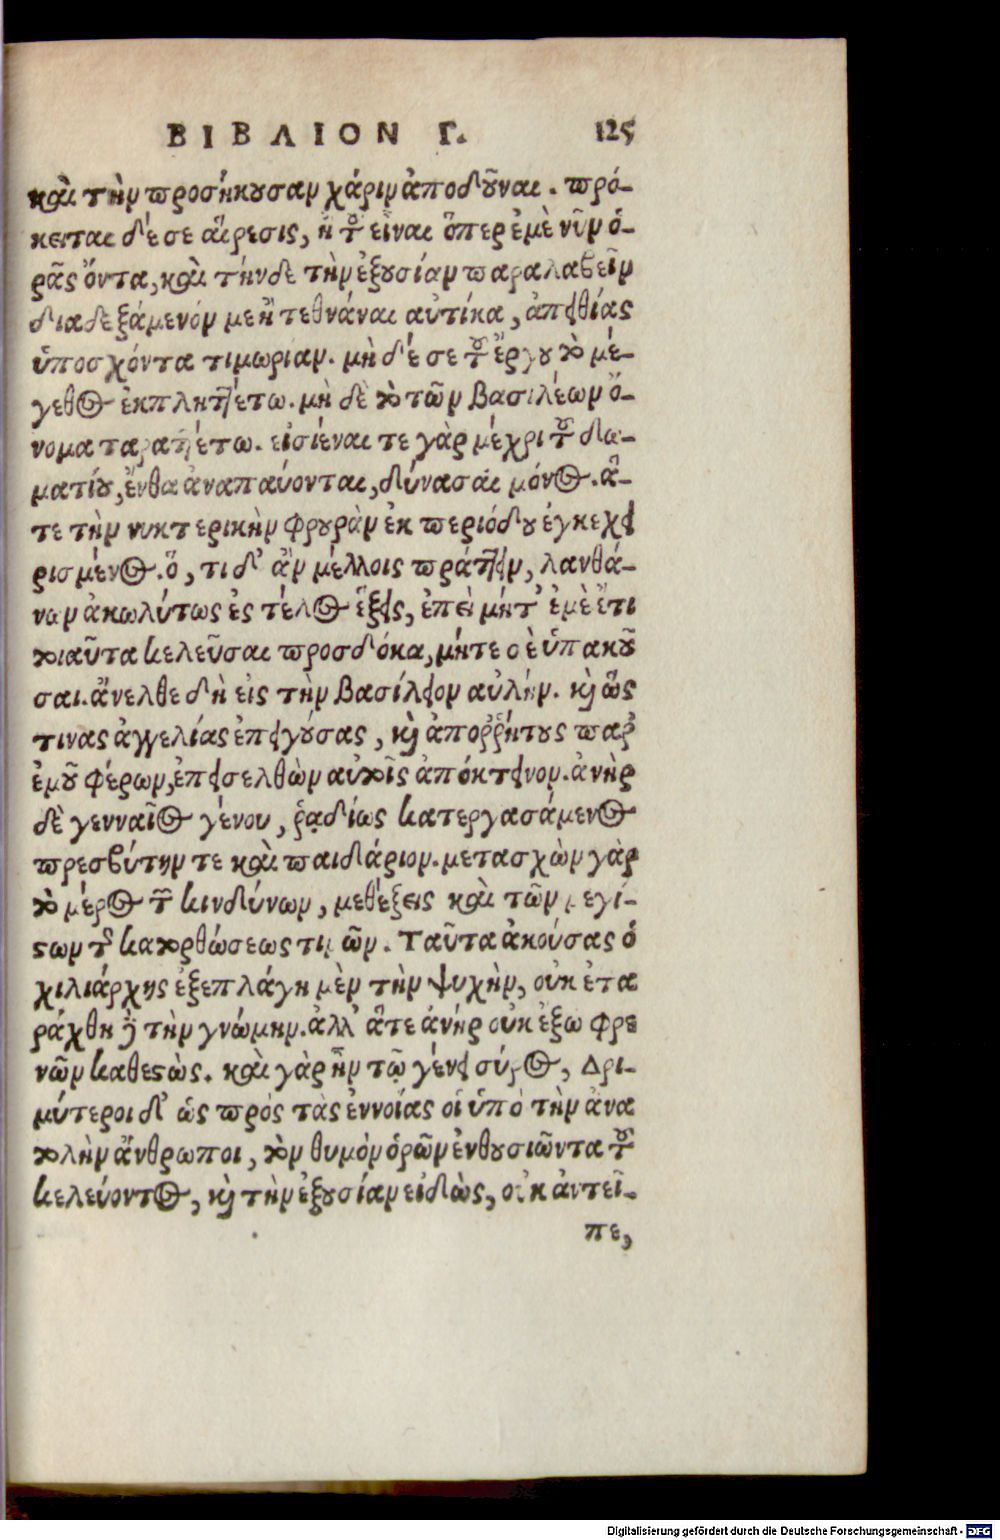 ΒΙΒΛΙΟΝ Γ. 125
καὶ τὴν προσήκουσαν χάριν ἀποδοῦναι. πρό-
κειται δέ σε αἵρεσις, ἢ τοῦ εἶναι ὅπερ ἐμὲ νῦν ὁ-
ρᾷς ὄντα, καὶ τήνδε τὴν ἐξουσίαν παραλαβεῖν
διαδεξάμενόν με ἢ τεθνάναι αὐτίκα, ἀπειθίας
ὑποσχόντα τιμωρίαν. μὴ δέ σε τοῦ ἔργου τὸ μέ-
γεθος ἐκπληττέτω. μὴ δὲ τὸ τῶν βασιλέων ὄ-
νομα ταραττέτω. εἰσιέναι τε γὰρ μέχρι τοῦ δω-
ματίου, ἔνθα ἀναπαύονται, δύνασαι μόνος. ἅ-
τε τὴν νυκτερικὴν φρουρὰν ἐκ περιόδου ἐγκεχει
ρισμένος. ὅ, τι δ' ἂν μέλλοις πράττειν, λανθά-
νων ἀκωλύτως ἐς τέλος ἕξεις, ἐπεὶ μήτ' ἐμὲ ἔτι
τοιαῦτα κελεῦσαι προσδόκα, μήτε σὲ ὑπακοῦ
σαι. ἄνελθε δὴ εἰς τὴν βασίλειον αὐλήν. καὶ ὥς
τινας ἀγγελίας ἐπειγούσας, καὶ ἀποῤῥήτους παρ'
ἐμοῦ φέρων, ἐπεισελθὼν αὐτοῖς ἀπόκτεινον. ἀνὴρ
δὲ γενναῖος γένου, ῥᾳδίως κατεργασάμενος
πρεσβύτην τε καὶ παιδάριον. μετασχὼν γὰρ
τὸ μέρος τῶν κινδύνων, μεθέξεις καὶ τῶν μεγί-
στων τῆς κατορθώσεως τιμῶν. Ταῦτα ἀκούσας ὁ
χιλιάρχης ἐξεπλάγη μὲν τὴν ψυχὴν, οὐκ ἐτα
ράχθη δὲ τὴν γνώμην. ἀλλ' ἅτε ἀνήρ οὐκ ἔξω φρε
νῶν καθεστὼς. καὶ γὰρ ἦν τῷ γένει σύρος, Δρι-
μύτεροι δ' ὡς πρός τὰς ἐννοίας οἱ ὑπὸ τὴν ἀνα
τολὴν ἄνθρωποι, τὸν θυμὸν ὁρῶν ἐνθουσιῶντα τοῦ
κελεύοντος, καὶ τὴν ἐξουσίαν εἰδὼς, οὐκ ἀντεῖ-
πε,
Digitalisierung gefördert durch die Deutsche Forschungsgemeinschaft - DFG